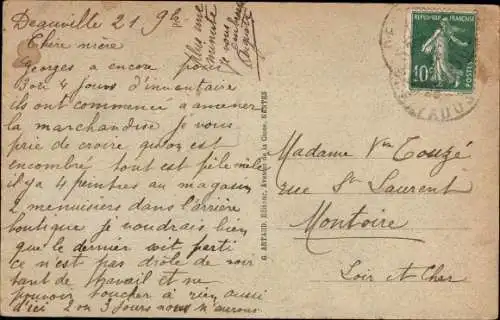 Deauville 21 9b
Chère mère
Georges a encore pour
3 ou 4 jours d'inventaire
ils ont commencé a amener
la marchandise je vous
prie de croire qu'on est
encombré tout est pêle mêle
il y a 4 peintres au magasin
2 menuisiers dans l'arrière
boutique je voudrais bien
que le dernier soit parti
ce n'est pas drôle de voir
tant de travail et ne
pouvoir toucher à rien aussi
d'ici 2 ou 3 jours nous n'aurons
plus une
minute
je vous
embrasse
G. ARTAUD, Editeur, Avenue de la Gare, NANTES
REPUBLIQUE FRANÇAISE
10c
POSTES
CALVADOS
Madame Vve Touzé
rue St Laurent
Montoire
Loir et Cher